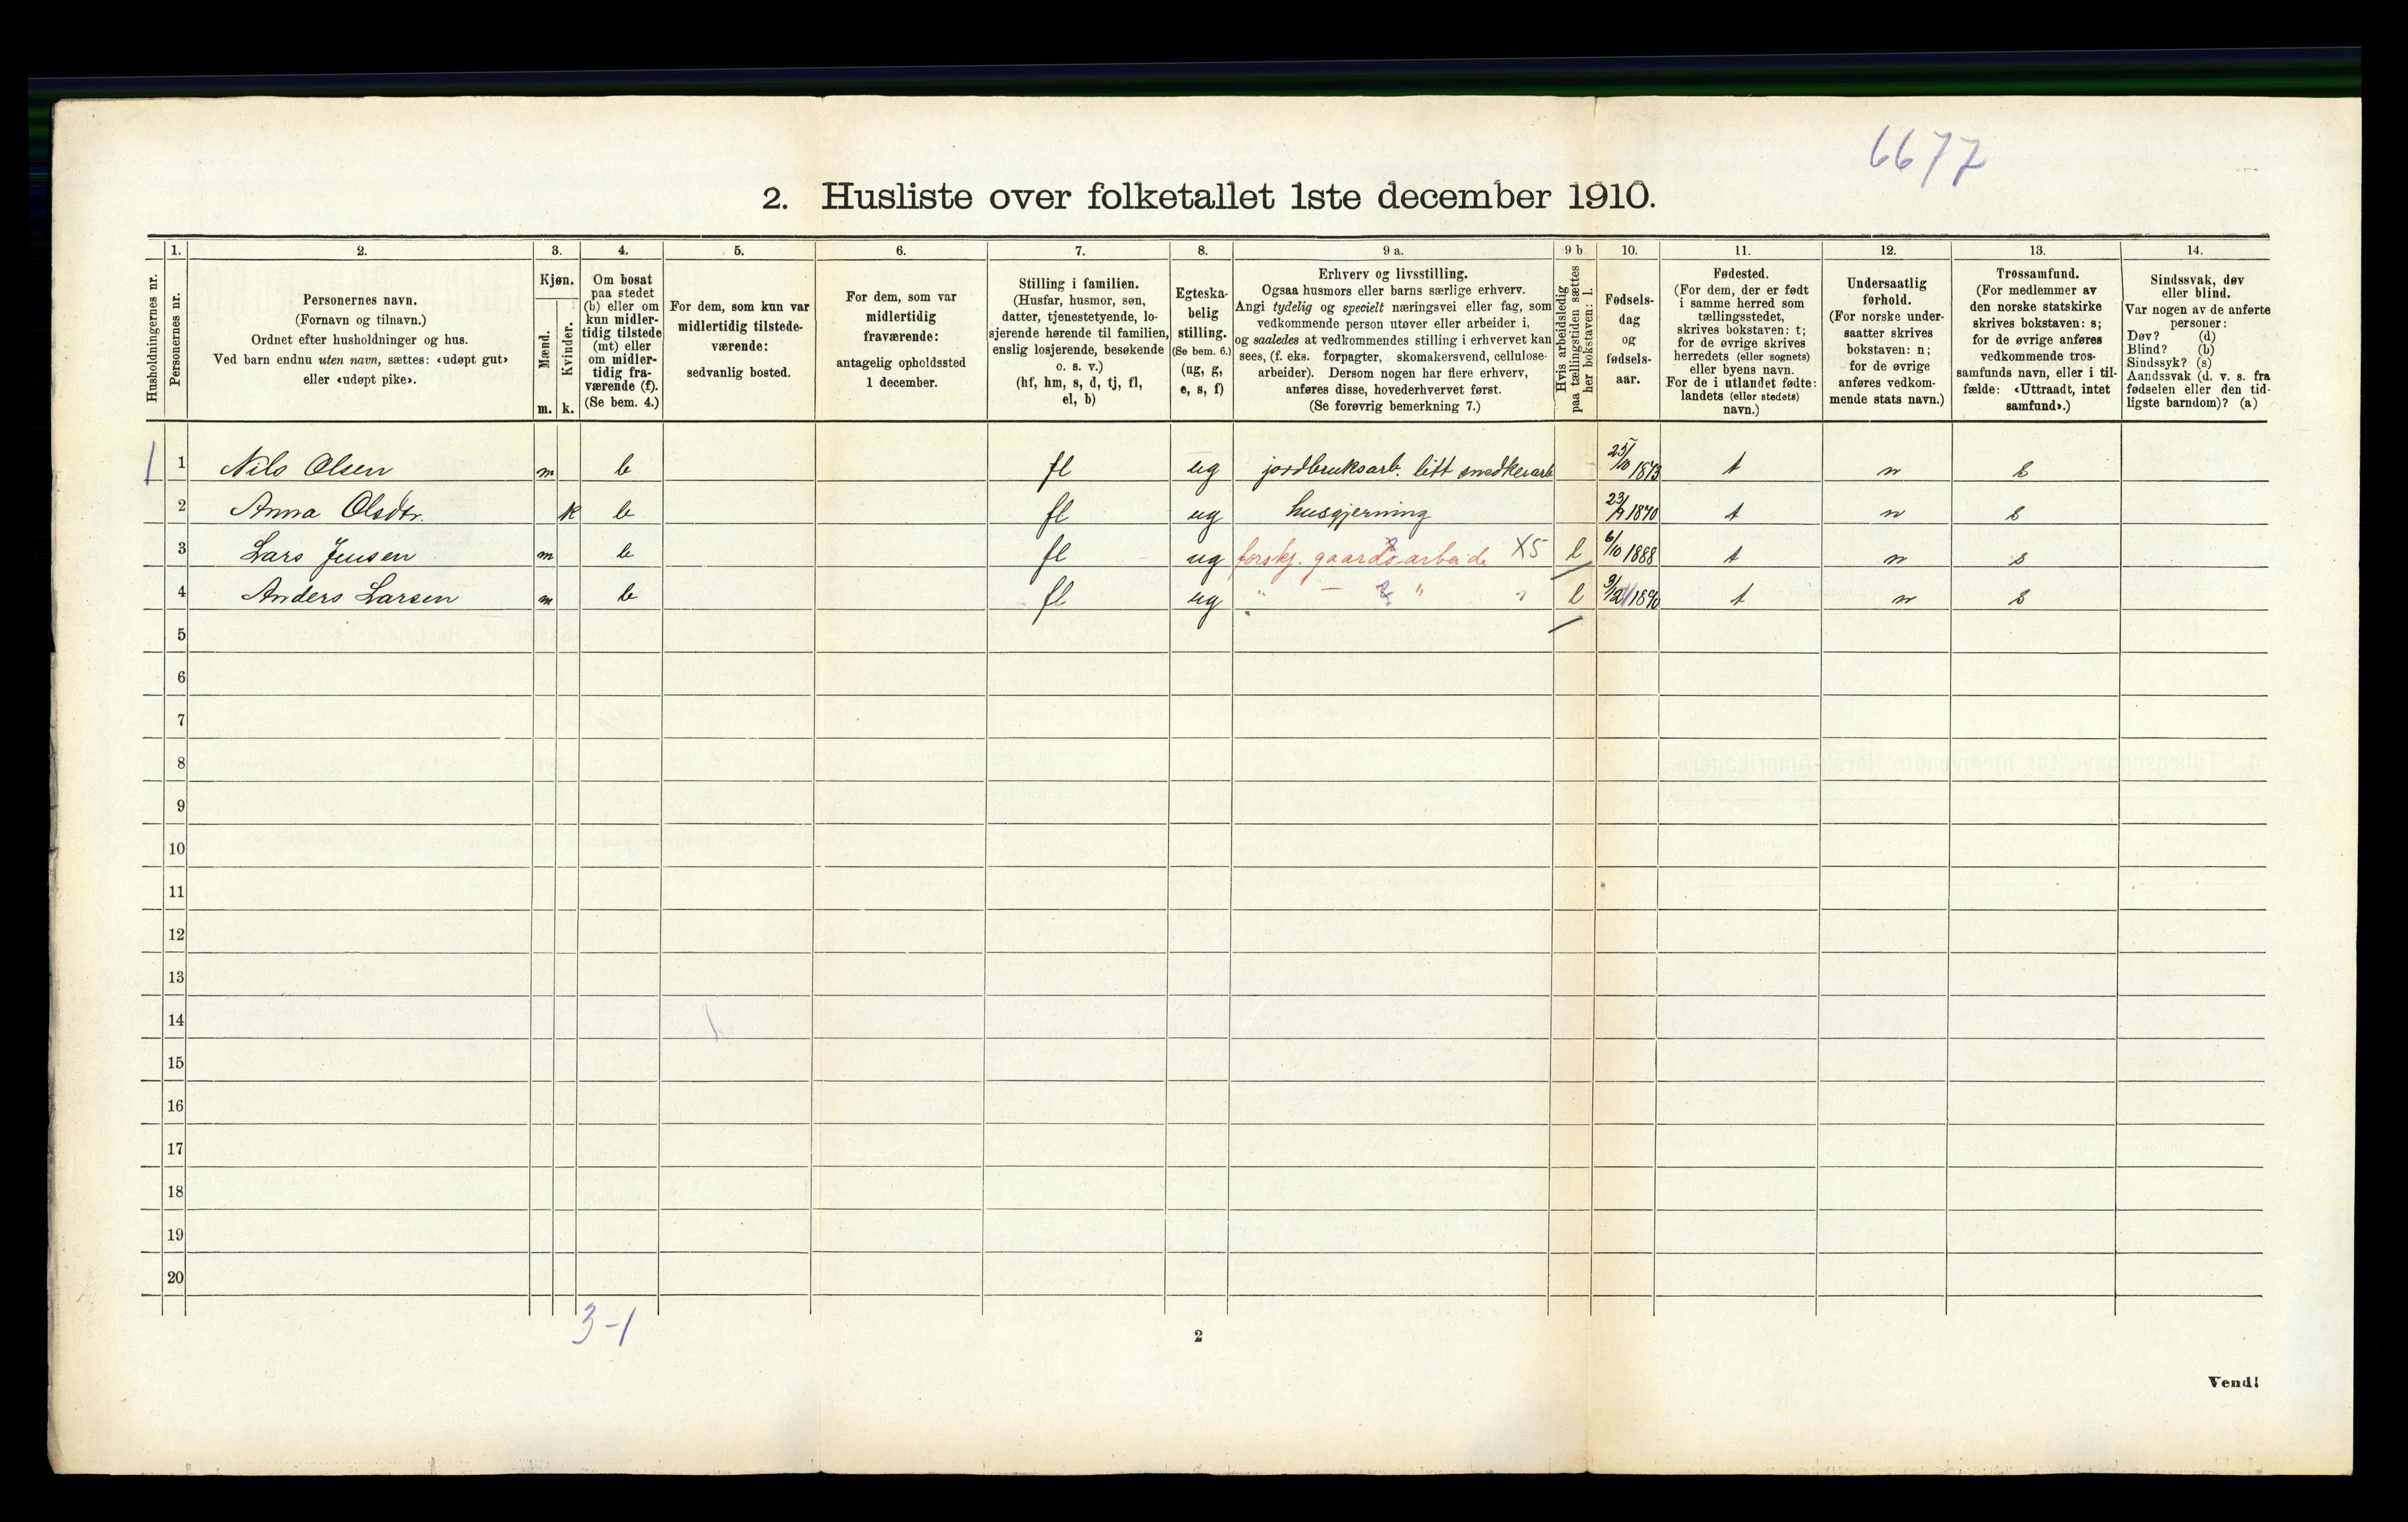 6677
2. Husliste over folketallet 1ste december 1910.
Husholdningernes nr.
1.
Personernes nr.
2.
Personernes navn.
(Fornavn og tilnavn.)
Ordnet efter husholdninger og hus.
Ved barn endnu uten navn, sættes: «udøpt gut»
eller «udøpt pike».
3.
Kjøn.
Mænd.
Kvinder.
m. k.
4.
Om bosat
paa stedet
(b) eller om
kun midler-
tidig tilstede
(mt) eller
om midler-
tidig fra-
værende (f).
(Se bem. 4.)
5.
For dem, som kun var
midlertidig tilstede-
værende:
sedvanlig bosted.
6.
For dem, som var
midlertidig
fraværende:
antagelig opholdssted
1 december.
7.
Stilling i familien.
(Husfar, husmor, søn,
datter, tjenestetyende, lo-
sjerende hørende til familien,
enslig losjerende, besøkende
o. s. v.)
(hf, hm, s, d, tj, fl,
el, b)
8.
Egteska-
belig
stilling.
(Se bem. 6.)
(ug, g,
e, s, f)
9 a.
Erhverv og livsstilling.
Ogsaa husmors eller barns særlige erhverv.
Angi tydelig og specielt næringsvei eller fag, som
vedkommende person utøver eller arbeider i,
og saaledes at vedkommendes stilling i erhvervet kan
sees, (f. eks. forpagter, skomakersvend, cellulose-
arbeider). Dersom nogen har flere erhverv,
anføres disse, hovederhvervet først.
(Se forøvrig bemerkning 7.)
9 b
Hvis arbeidsledig
paa tællingstiden sættes
her bokstaven: l.
10.
Fødsels-
dag
og
fødsels-
aar.
11.
Fødested.
(For dem, der er født
i samme herred som
tællingsstedet,
skrives bokstaven: t;
for de øvrige skrives
herredets (eller sognets)
eller byens navn.
For de i utlandet fødte:
landets (eller stedets)
navn.)
12.
Undersaatlig
forhold.
(For norske under-
saatter skrives
bokstaven: n;
for de øvrige
anføres vedkom-
mende stats navn.)
13.
Trossamfund.
(For medlemmer av
den norske statskirke
skrives bokstaven: s;
for de øvrige anføres
vedkommende tros-
samfunds navn, eller i til-
fælde: «Uttraadt, intet
samfund».)
14.
Sindssvak, døv
eller blind.
Var nogen av de anførte
personer:
Døv? (d)
Blind? (b)
Sindssyk? (s)
Aandssvak (d. v. s. fra
fødselen eller den tid-
ligste barndom)? (a)
1 1 Nils Olsen m b fl ug jordbruksarb. litt snedkerarb 25/10 1873 t n s
2 Anna Olsdtr. k b fl ug husgjerning 1870 t n s
3 Lars Jensen m b fl ug forskj. gaardsarbeide X5 l 6/10 1888 t n s
4 Anders Larsen m b fl ug " — " l 1890 t n s
5
6
7
8
9
10
11
12
13
14
15
16
17
18
19
20
3-1
2
Vend!